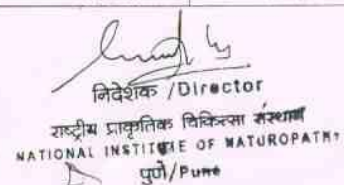 निदेशक /Director
राष्ट्रीय प्राकृतिक चिकित्सा संस्थान
NATIONAL INSTITUTE OF NATUROPATHY
पुणे/Pune